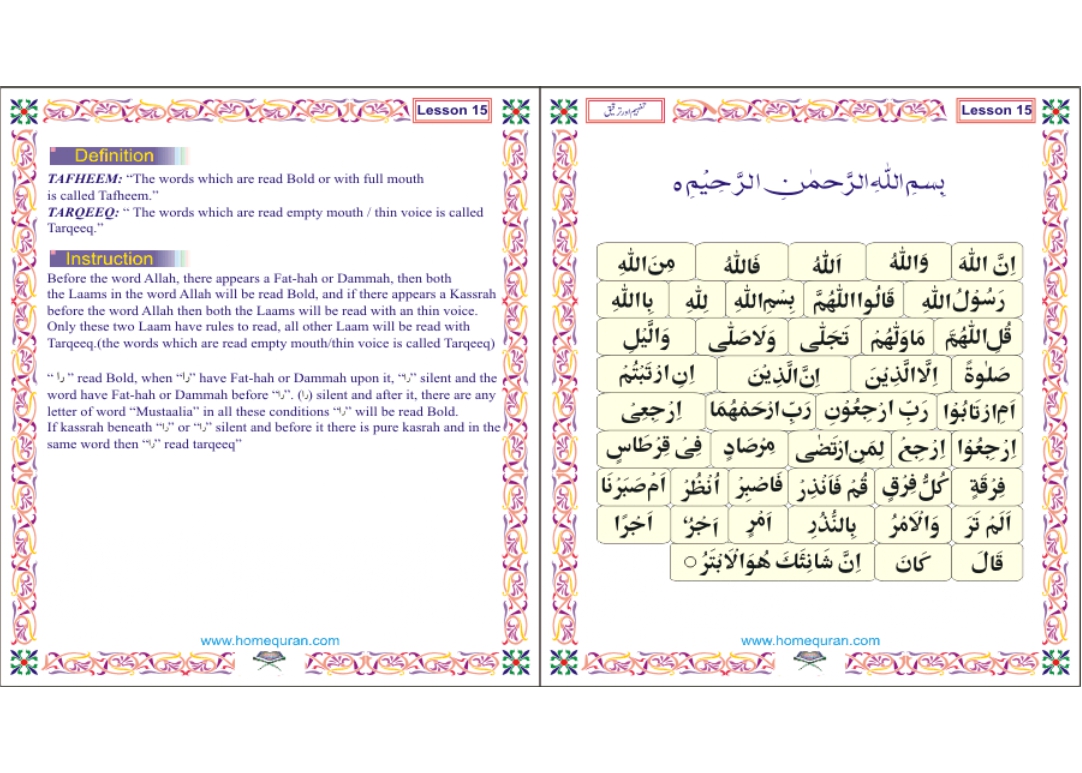 Lesson 15
Definition
TAFHEEM: “The words which are read Bold or with full mouth
is called Tafheem.”
TARQEEQ: “ The words which are read empty mouth / thin voice is called
Tarqeeq.”
Instruction
Before the word Allah, there appears a Fat-hah or Dammah, then both
the Laams in the word Allah will be read Bold, and if there appears a Kassrah
before the word Allah then both the Laams will be read with an thin voice.
Only these two Laam have rules to read, all other Laam will be read with
Tarqeeq.(the words which are read empty mouth/thin voice is called Tarqeeq)
“ را ” read Bold, when “را” have Fat-hah or Dammah upon it, “را” silent and the
word have Fat-hah or Dammah before “را”. (را) silent and after it, there are any
letter of word “Mustaalia” in all these conditions “را” will be read Bold.
If kassrah beneath “را” or “را” silent and before it there is pure kasrah and in the
same word then “را” read tarqeeq”
www.homequran.com
تفہیم اور ترقیق
Lesson 15
بِسْمِ اللهِ الرَّحْمٰنِ الرَّحِيْمِ ه
اِنَّ اللّٰهَ وَاللّٰهُ اَللّٰهُ فَاللّٰهُ مِنَ اللّٰهِ
رَسُوْلُ اللّٰهِ قَالُوا اللّٰهُمَّ بِسْمِ اللّٰهِ لِلّٰهِ بِاللّٰهِ
قُلِ اللّٰهُمَّ مَاوَلّٰهُمْ تَجَلّٰى وَلَاصَلّٰى وَالَّيْلِ
صَلٰوةً اِلَّا الَّذِيْنَ اِنَّ الَّذِيْنَ اِنِ ارْتَبْتُمْ
اَمِ ارْتَابُوْا رَبِّ ارْجِعُوْنِ رَبِّ ارْحَمْهُمَا اِرْجِعِىْ
اِرْجِعُوْا اِرْجِعْ لِمَنِ ارْتَضٰى مِرْصَادٍ فِىْ قِرْطَاسٍ
فِرْقَةٍ كُلُّ فِرْقٍ قُمْ فَاَنْذِرْ فَاصْبِرْ اُنْظُرْ اَمْ صَبَرْنَا
اَلَمْ تَرَ وَالْاَمْرُ بِالنُّذُرِ اَمْرٍ اَجْرٌ اَجْرًا
قَالَ كَانَ اِنَّ شَانِئَكَ هُوَ الْاَبْتَرُ ○
www.homequran.com